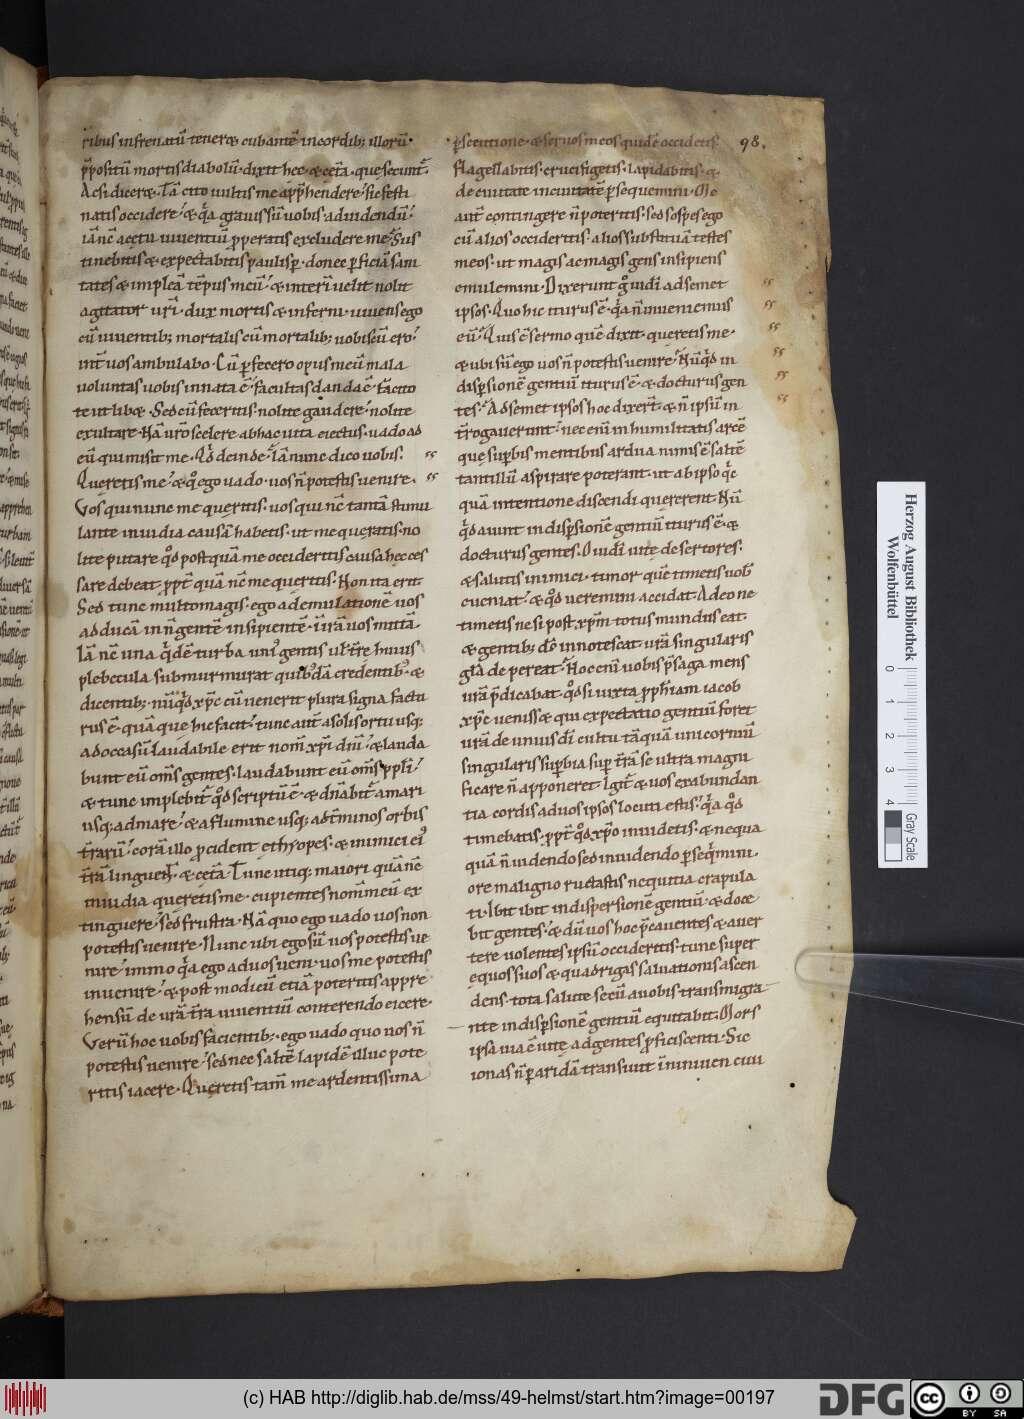 ribus infrenatū teneræ cubantē in cordib; illorū·
p̄positū mortis diabolū· dixit hęc· & cęt̄a· quę secunt̄·
Ac si diceræ· Tā cito vultis me app̄hendere· sic festi
natis occidere· & q̄a grauis sū uobis· ad uidendū·
iā nc̄ a cętu uiuentiū properatis excludere me· Sus
tinebitis &· expectabitis paulisp̄· donec p̄ficiā sani
tates & impleā tēpus meū· & interī uelit nolit
agitator ur̄i· dux mortis & inferni· uiuens ego
cū uiuentib; mortalis cū mortalib; uobiscū ero·
int̄ uos ambulabo· Cū p̄fecero opus meū mala
uoluntas uobis innata ē· facultas danda ē· fac̄ito
te ut libæ· Sed cū feceritis· nolite gaudere· nolite
exultare· Nā ur̄o scelere ab hac uita eiectus· uado ad
eū qui misit me· Qd̄ deinde· Iā nunc dico uobis·
Quęretis me· & q̊ ego uado· uos n̄ potestis uenire·
Vos qui nunc me quęritis· uos qui nc̄ tantā stimu
lante inuidia causā habetis· ut me quęratis· no
lite putare q̊d postquā me occideritis causa hęc ces
sare debeat· ppt̄ quā nc̄ me quęritis· Non ita erit
Sed tunc multo magis· ego ad emulationē uos
adducā in n̄ gentē· in gentē insipientē· ī irā uos mittā·
plebecula submurmurat quib;dā credentib;· &
dicentib;· nūq̊d xp̄c cū uenerit plura signa factu
rus ē· quā quę hic facit· tunc aut̄ a solis ortu usq;
ad occasū laudabile erit nom̄ xp̄i dn̄i· & lauda
bunt eū om̄s gentes· laudabunt eū om̄s pp̄li·
& tunc implebit̄ q̊d scriptū ē· & dn̄abit̄ a mari
usq; ad mare· & a flumine usq; ad t̄minos orbis
t̄rarū· corā illo procident ęthyopes· & inimici ei'
t̄rā lingent̄· & cęt̄a· Tunc utiq; maiori quā nc̄
inuidia quęretis me· cupientes nom̄ meū ex
tinguere· sed frustra· Nā quo ego uado uos non
potestis uenire· Nunc ubi ego sū uos potestis ue
nire· immo q̄a ego ad uos ueni· uos me potestis
inuenire· & post modicū etiā poteritis appre
hensū de ur̄ā t̄ra uiuentiū contendo eicere·
Verū hoc uobis facientib;· ego uado quo uos n̄
potestis uenire· sed nec saltē lapidē illuc pote
ritis iacere· Quęretis tam̄ me ardentissima
p̄secutione· & seruos meos quidē occidetis
98.
flagellabitis· crucifigetis· lapidabitis· &
de ciuitate in ciuitatē p̄sequemini· Me
autē contingere n̄ poteritis· sed sospes ego
cū alios occideritis· alios substituā testes
meos· ut magis ac magis gens insipiens
emulemini· Dixerunt g̊ iudęi ad semet
ipsos· Quo hic iturus ē· q̄a n̄ inueniemus
eū· Quis ē sermo quē dixit· quęretis me·
& ubi sū ego uos n̄ potestis uenire· Nūq̊d in
disp̄sionē gentiū iturus ē· & docturus gen
tes· Ad semet ipsos hoc dixer̄t· & n̄ ipsū in
t̄rogauerunt· nec enī in humilitatis arcē
quę sup̄bis mentibus ardua nimis ē saltē
tantillū aspirare poterant· ut ab ipso q̄c
quā intentione discendi quęrerent· Nū
q̊d aiunt in disp̄sionē gentiū iturus ē· &
docturus gentes· O uidī uitę desertores·
& salutis inimici· timor quē timetis uob̄
eueniat· & q̊d ueremini accidat· Adeo ne
timetis ne si post xp̄m totus mundus eat·
& gentib; do innotescat· urā singularis
glā depereat· Hoc enī uobis p̄saga mens
urā p̄dicabat· q̊d si iuxta prophiam iacob
xp̄c uenissæ qui expectatio gentiū foret
urā de unius dī cultu tāquā unicornū
singularis sup̄bia sup̄ t̄rā se ultra magni
ficare n̄ apponeret· Igit̄ & uos exabundan
tia cordis ad uos ipsos locuti estis· q̄a q̊d
timebatis· ppt̄ q̊d xpo inuidetis· & nequa
quā n̄ uidendo sed inuidendo p̄seq̄mini·
ore maligno ructastis nequitia crapula
ti· Ibit ibit in dispersionē gentiū· & doce
bit gentes· & dū uos hoc p̄cauentes & auer
tere uolentes ipsū occideritis· tunc super
equos suos & quadrigas saluationis ascen
dens· tota salute secū a uobis transmigra
nte in disp̄sionē gentiū equitabit· Mors
ipsa uia ē uitę ad gentes proficiscenti· Sic
ionas n̄ p̄ aridā transiuit ī niniuen ciui
Herzog August Bibliothek
Wolfenbüttel
0 1 2 3 4
Gray Scale
(c) HAB http://diglib.hab.de/mss/49-helmst/start.htm?image=00197
DFG
cc BY SA